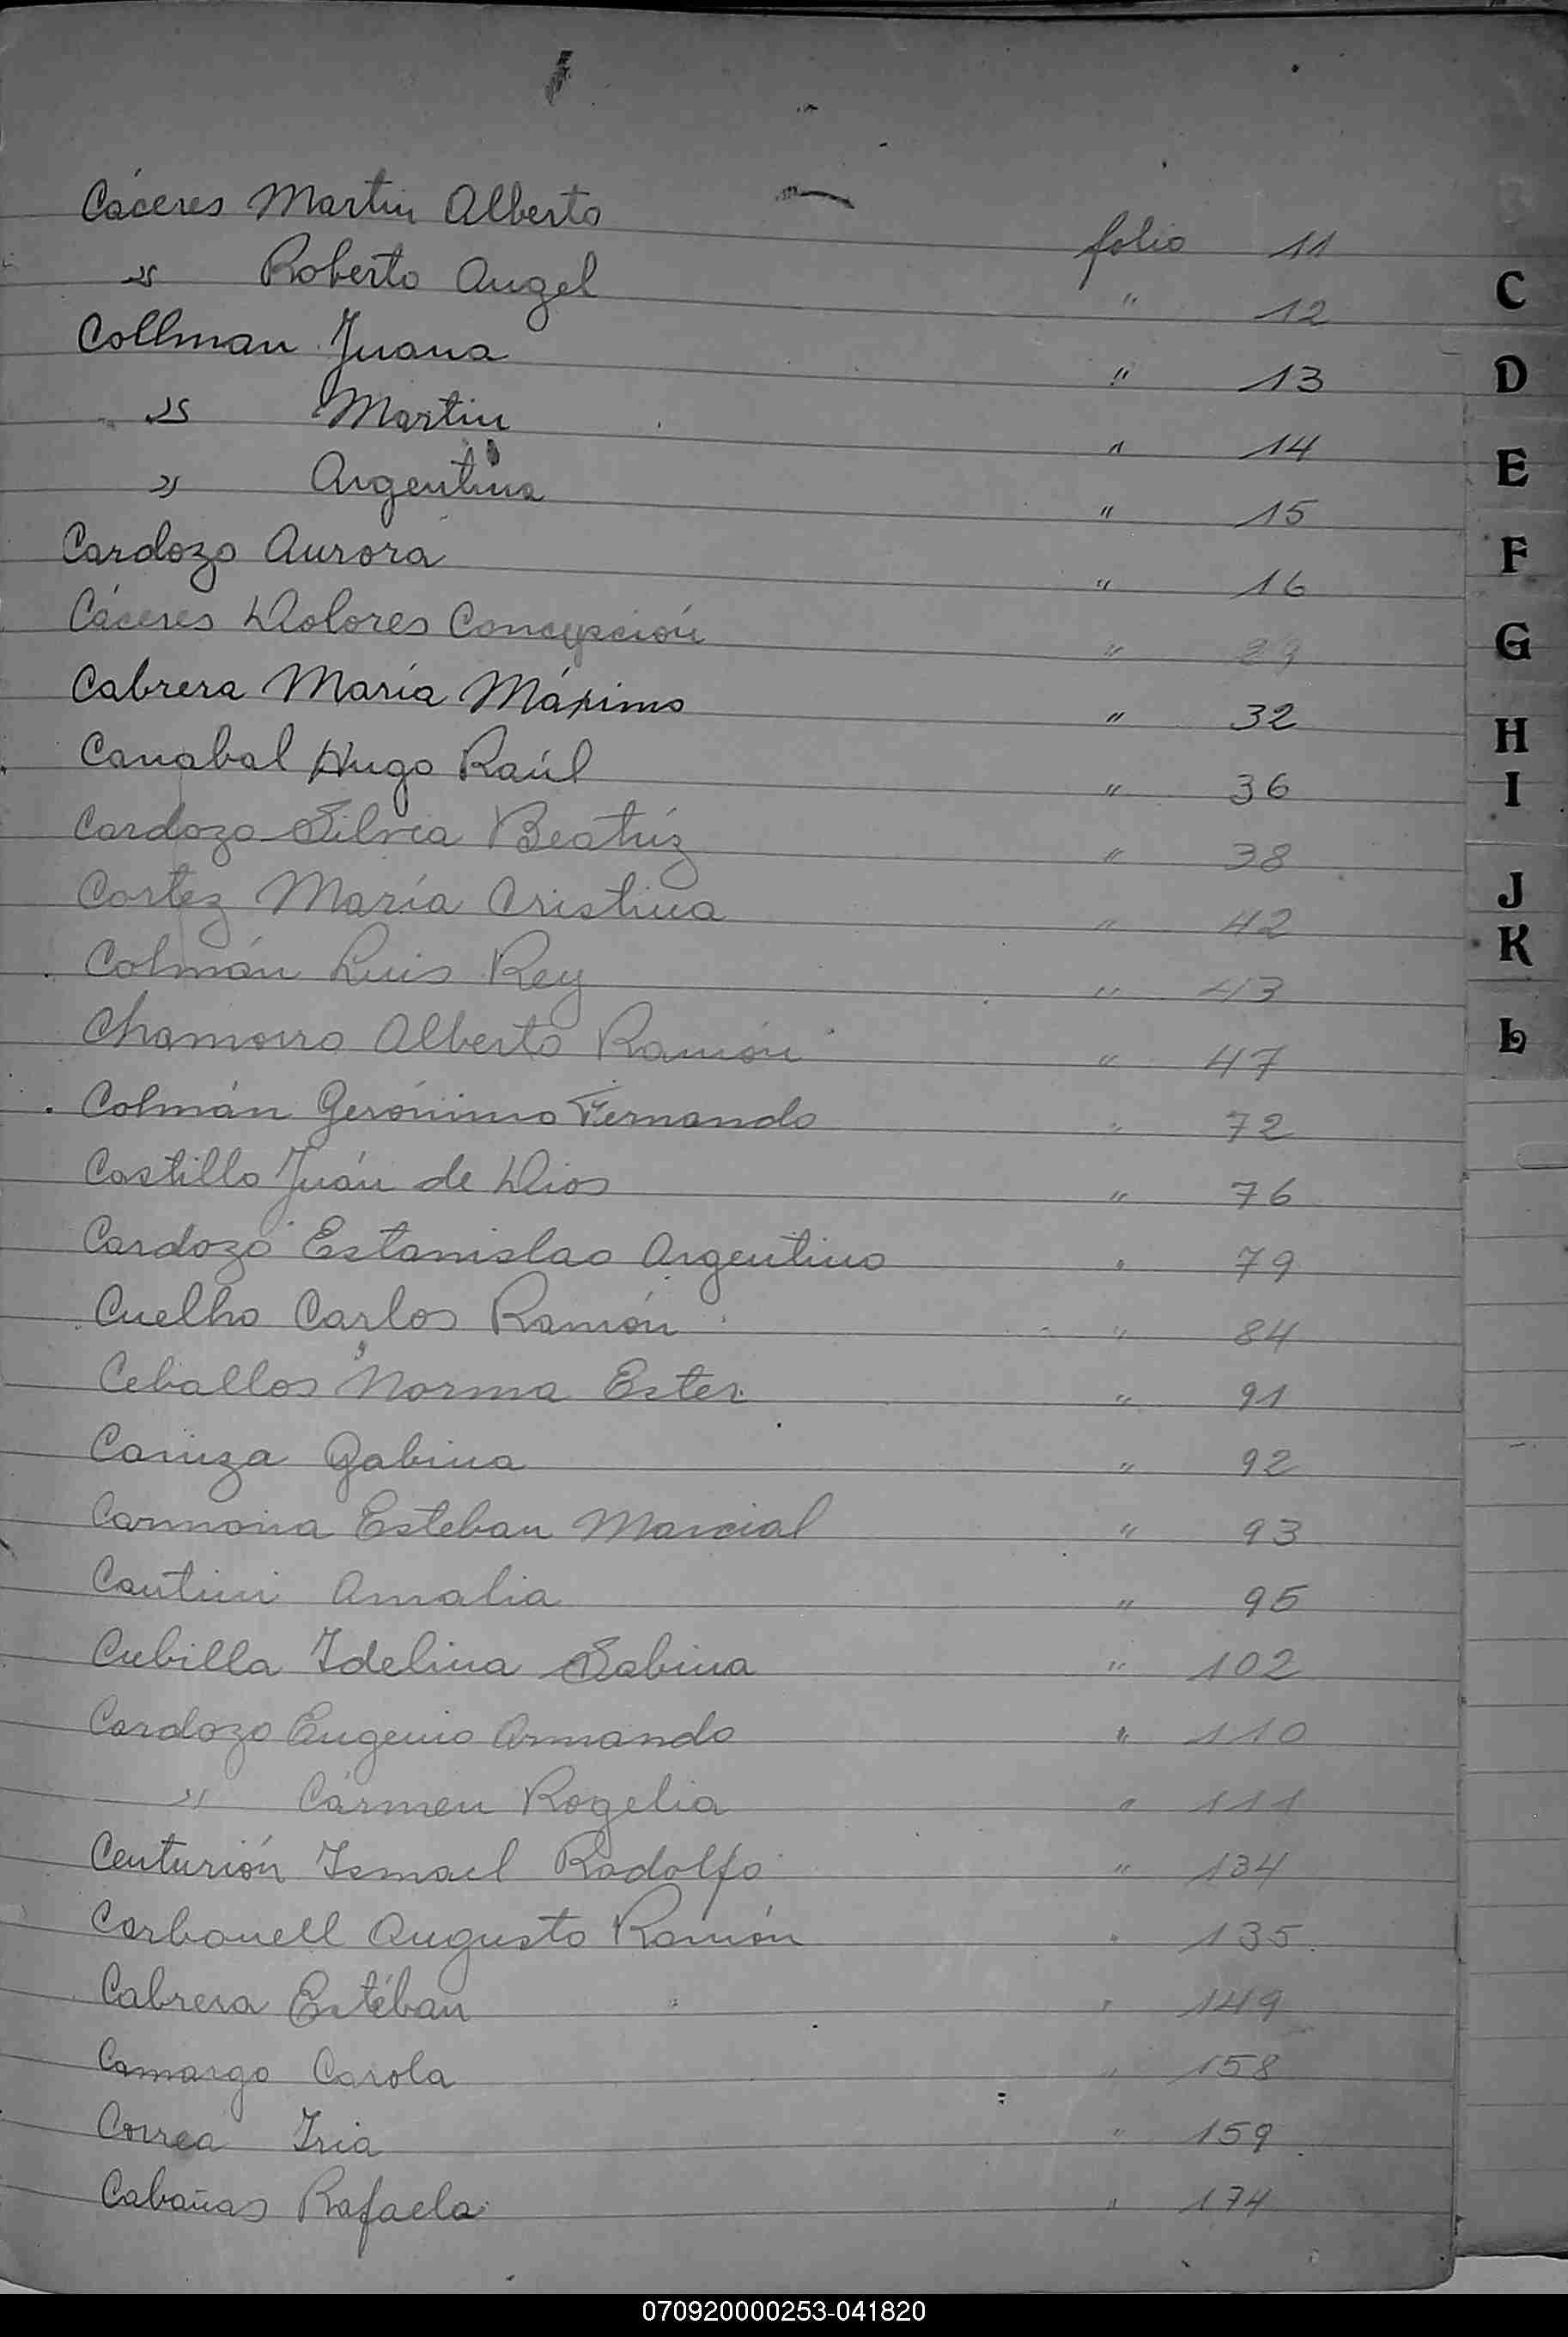 Cáceres Martin Alberto folio 11
" Roberto Angel " 12
Collman Juana " 13
" Martin " 14
" Argentina " 15
Cardozo Aurora " 16
Cáceres Dolores Concepción " 29
Cabrera María Máximo " 32
Canabal Hugo Raúl " 36
Cardozo Silvia Beatríz " 38
Cortez María Cristina " 42
Colmán Luis Rey " 43
Chamorro Alberto Ramón " 47
Colmán Gerónimo Fernando " 72
Castillo Juán de Dios " 76
Cardozo Estanislao Argentino " 79
Cuelho Carlos Ramón " 84
Ceballos Norma Ester " 91
Caniza Gabina " 92
Carmona Esteban Marcial " 93
Cantini Amalia " 95
Cubilla Idelina Sabina " 102
Cardozo Eugenio Armando " 110
" Cármen Rogelia " 111
Centurión Ismael Rodolfo " 134
Carbonell Augusto Ramón " 135
Cabrera Estéban " 149
Camargo Carola " 158
Correa Iria " 159
Cabañas Rafaela " 174
C
D
E
F
G
H
I
J
K
L
070920000253-041820